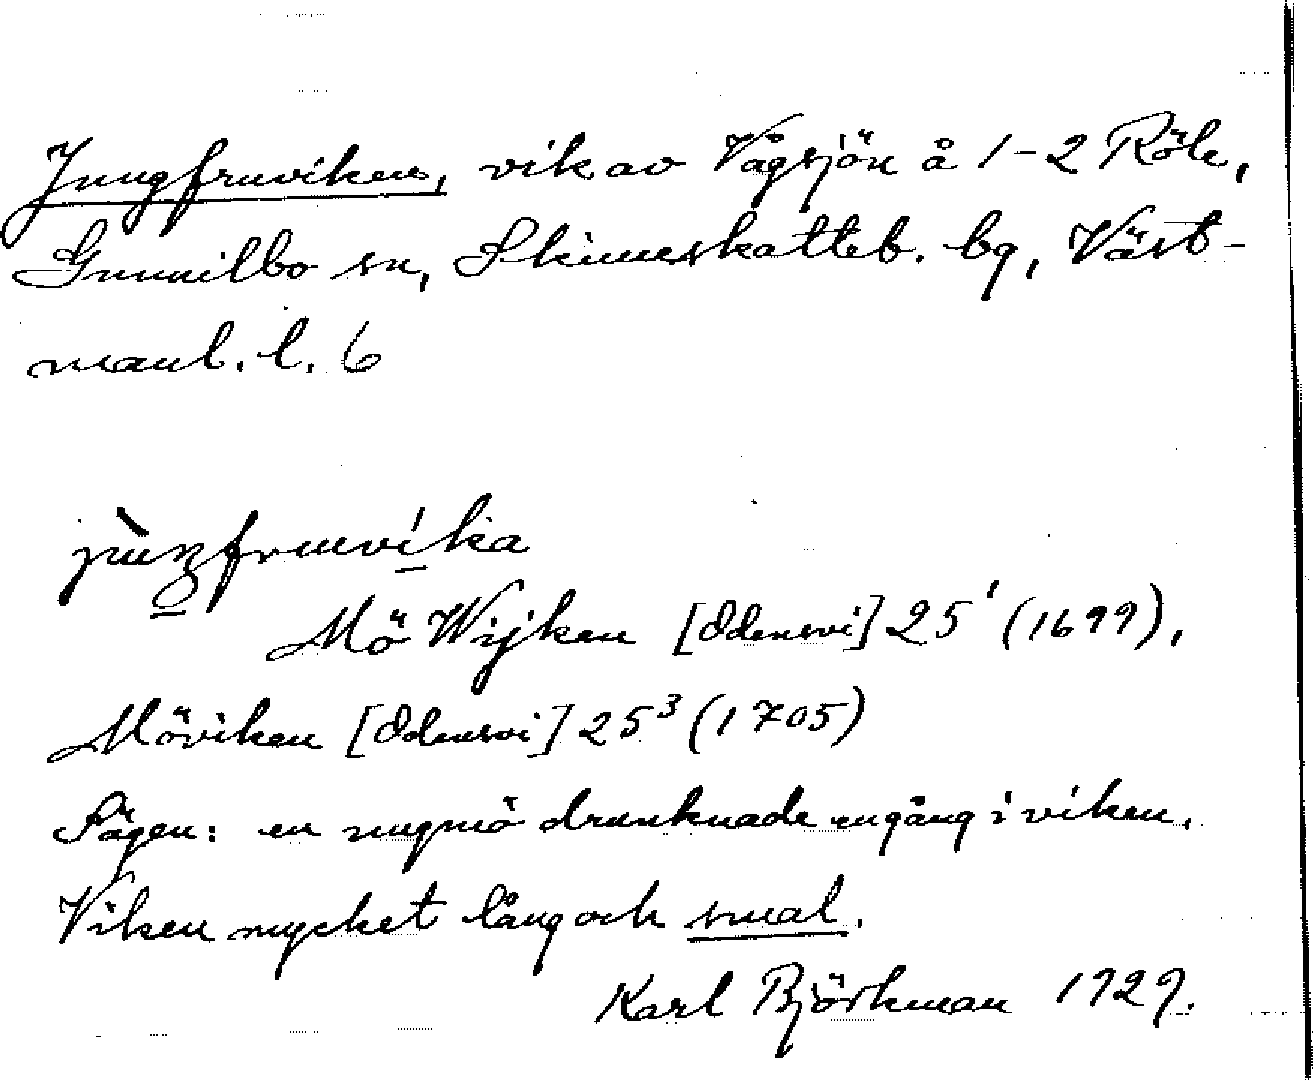 Jungfruviken, vik av Vågsjön å 1-2 Röle,
Gunnilbo sn, Skinnskatteb. bg, Väst-
manl. l. 6
jùŋfruvíka
Mö Wijken [Odensvi] 25¹ (1699),
Möviken [Odensvi] 25³ (1705)
Sägen: en ungmö drunknade engång i viken.
Viken mycket lång och smal.
Karl Björkman 1929.